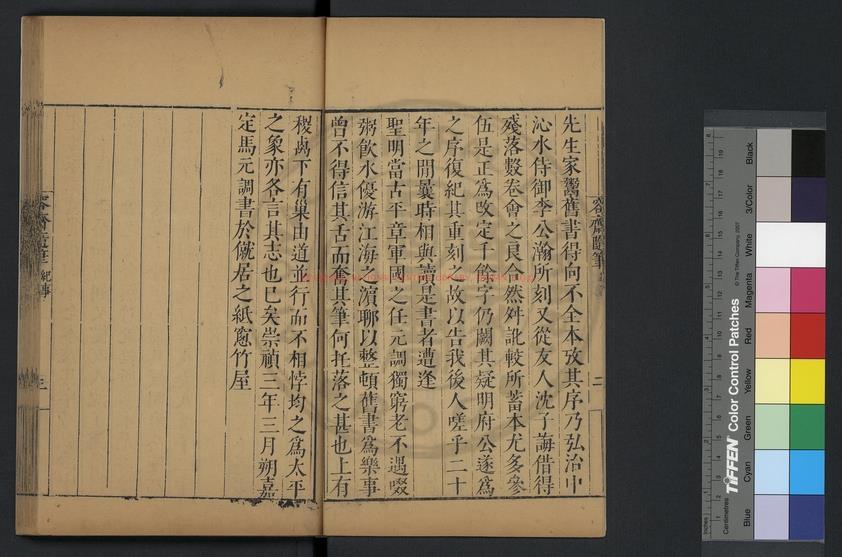 先生家鬻舊書得向不全本攷其序乃弘治中
沁水侍御李公瀚所刻又從友人沈子誨借得
殘落數卷會之良合然舛訛較所蓄本尤多參
伍是正爲改定千餘字仍闕其疑明府公遂爲
之序復紀其重刻之故以告我後人嗟乎二十
年之間曩時相與讀是書者遭逢
聖明當古平章軍國之任元調獨窮老不遇啜
粥飲水優游江海之濱聊以整頓舊書爲樂事
曾不得信其舌而奮其筆何托落之甚也上有
稷卨下有巢由道並行而不相悖均之爲太平
之象亦各言其志也已矣崇禎三年三月朔嘉
定馬元調書於僦居之紙窻竹屋
容齋隨筆
二
紀事
三
Inches
Centimetres
TIFFEN Color Control Patches
© The Tiffen Company, 2007
Blue
Cyan
Green
Yellow
Red
Magenta
White
3/Color
Black